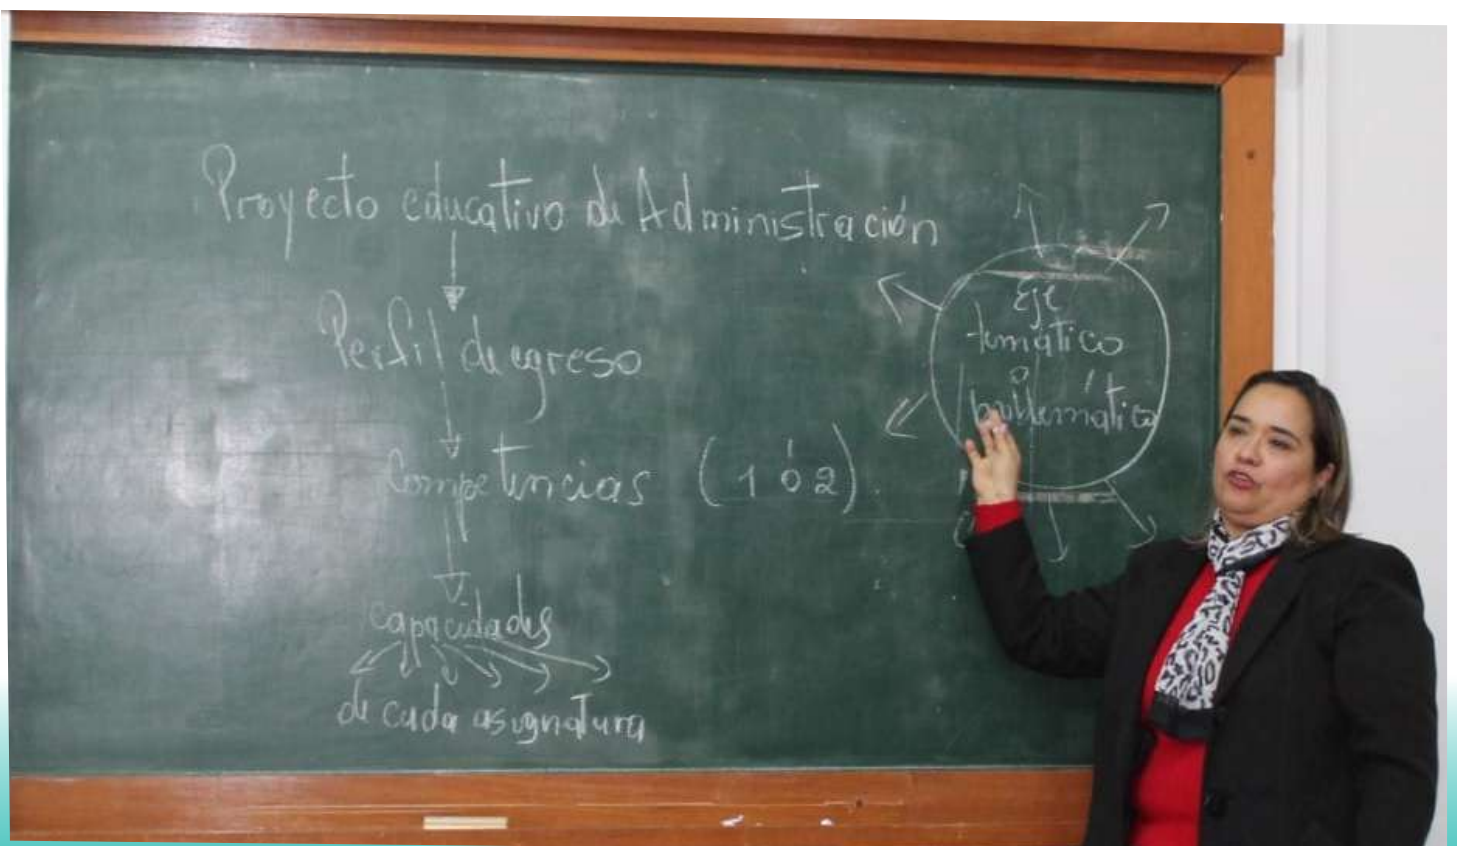 Proyecto educativo de Administración
Perfil de egreso
Competencias (1 ó 2)
capacidades
de cada asignatura
Eje
temático
o
problemático